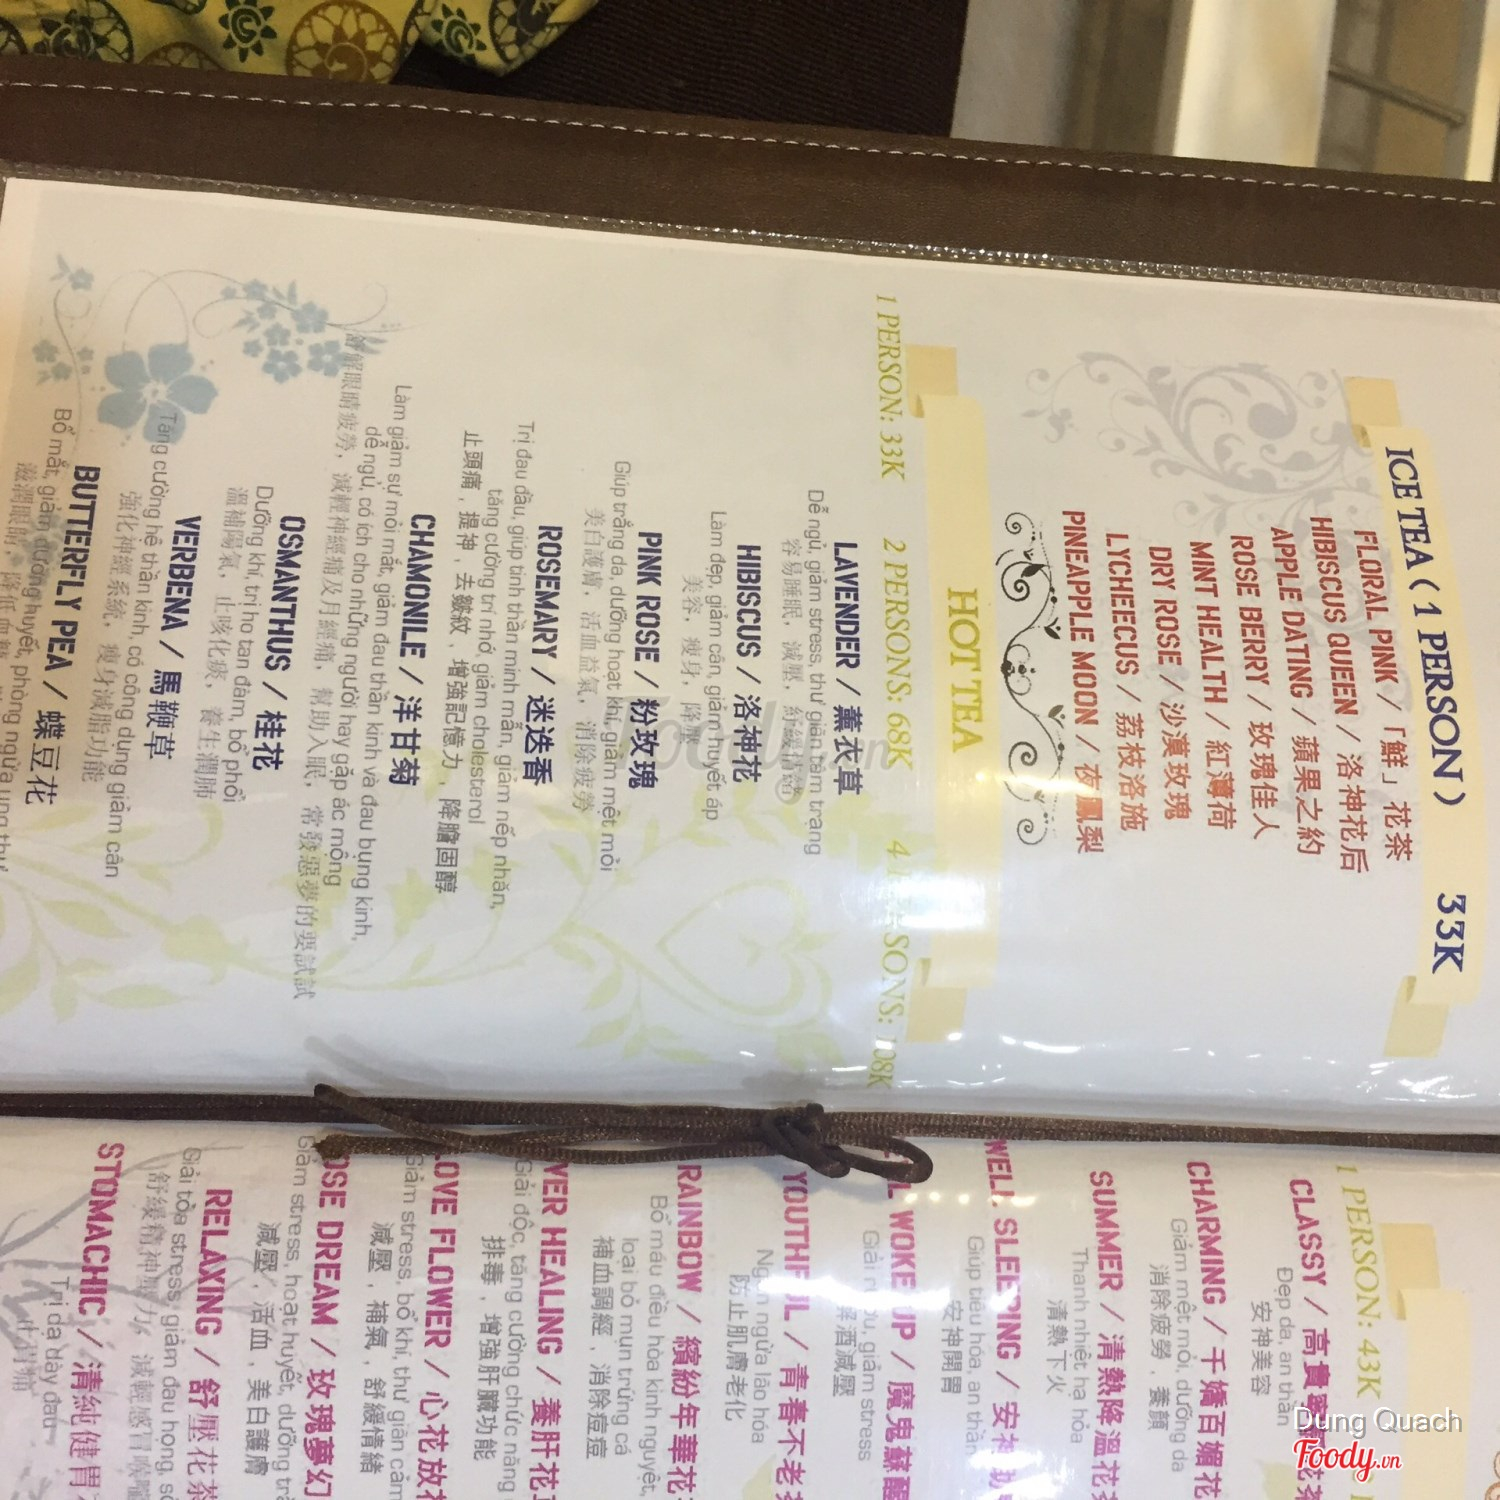 ICE TEA ( 1 PERSON ) 33K
FLORAL PINK / 「鮮」花茶
HIBISCUS QUEEN / 洛神花后
APPLE DATING / 蘋果之約
ROSE BERRY / 玫瑰佳人
MINT HEALTH / 紅薄荷
DRY ROSE / 沙漠玫瑰
LYCHEECUS / 荔枝洛施
PINEAPPLE MOON / 夜鳳梨
HOT TEA
1 PERSON: 33K 2 PERSONS: 68K 4 PERSONS: 108K
LAVENDER / 薰衣草
Dễ ngủ, giảm stress, thư giãn tâm trạng
容易睡眠，減壓，紓緩情緒
HIBISCUS / 洛神花
Làm đẹp, giảm cân, giảm huyết áp
美容，瘦身，降壓
PINK ROSE / 粉玫瑰
Giúp trắng da, dưỡng hoạt khí, giảm mệt mỏi
美白護膚，活血益氣，消除疲勞
ROSEMARY / 迷迭香
Trị đau đầu, giúp tinh thần minh mẫn, giảm nếp nhăn,
tăng cường trí nhớ, giảm cholesterol
止頭痛，提神，去皺紋，增強記憶力，降膽固醇
CHAMONILE / 洋甘菊
Làm giảm sự mỏi mắt, giảm đau thần kinh và đau bụng kinh,
dễ ngủ, có ích cho những người hay gặp ác mộng
舒解眼睛疲勞，減輕神經痛及月經痛，幫助入眠，常發惡夢的要試試
OSMANTHUS / 桂花
Dưỡng khí, trị ho tan đàm, bổ phổi
溫補陽氣，止咳化痰，養生潤肺
VERBENA / 馬鞭草
Tăng cường hệ thần kinh, có công dụng giảm cân
強化神經系統，瘦身減脂功能
BUTTERFLY PEA / 蝶豆花
Bổ mắt, giảm đường huyết, phòng ngừa ung thư
滋潤眼睛，降低血糖
1 PERSON: 43K
CLASSY / 高貴
Đẹp da, an thần
安神美容
CHARMING / 千嬌百媚花
Giảm mệt mỏi, dưỡng da
消除疲勞，養顏
SUMMER / 清熱降溫花
Thanh nhiệt, hạ hỏa
清熱下火
WELL SLEEPING / 安神
Giúp tiêu hóa, an thần
安神開胃
WOKE UP / 魔鬼甦醒
Giải rượu, giảm stress
解酒減壓
YOUTHFUL / 青春不老
Ngăn ngừa lão hóa
防止肌膚老化
RAINBOW / 繽紛年華花
Bổ máu điều hòa kinh nguyệt,
loại bỏ mụn trứng cá
補血調經，消除痘痘
VER HEALING / 養肝花
Giải độc, tăng cường chức năng
排毒，增強肝臟功能
LOVE FLOWER / 心花放
Giảm stress, bổ khí, thư giãn cảm
減壓，補氣，舒緩情緒
OSE DREAM / 玫瑰夢幻
Giảm stress, hoạt huyết, dưỡng
減壓，活血，美白護膚
RELAXING / 舒壓花茶
Giải tỏa stress, giảm đau họng,
舒緩精神壓力，減輕感冒喉嚨
STOMACHIC / 清純健胃
Trị dạ dày đau
止胃痛
Foody.vn
Dung Quach
Foody.vn